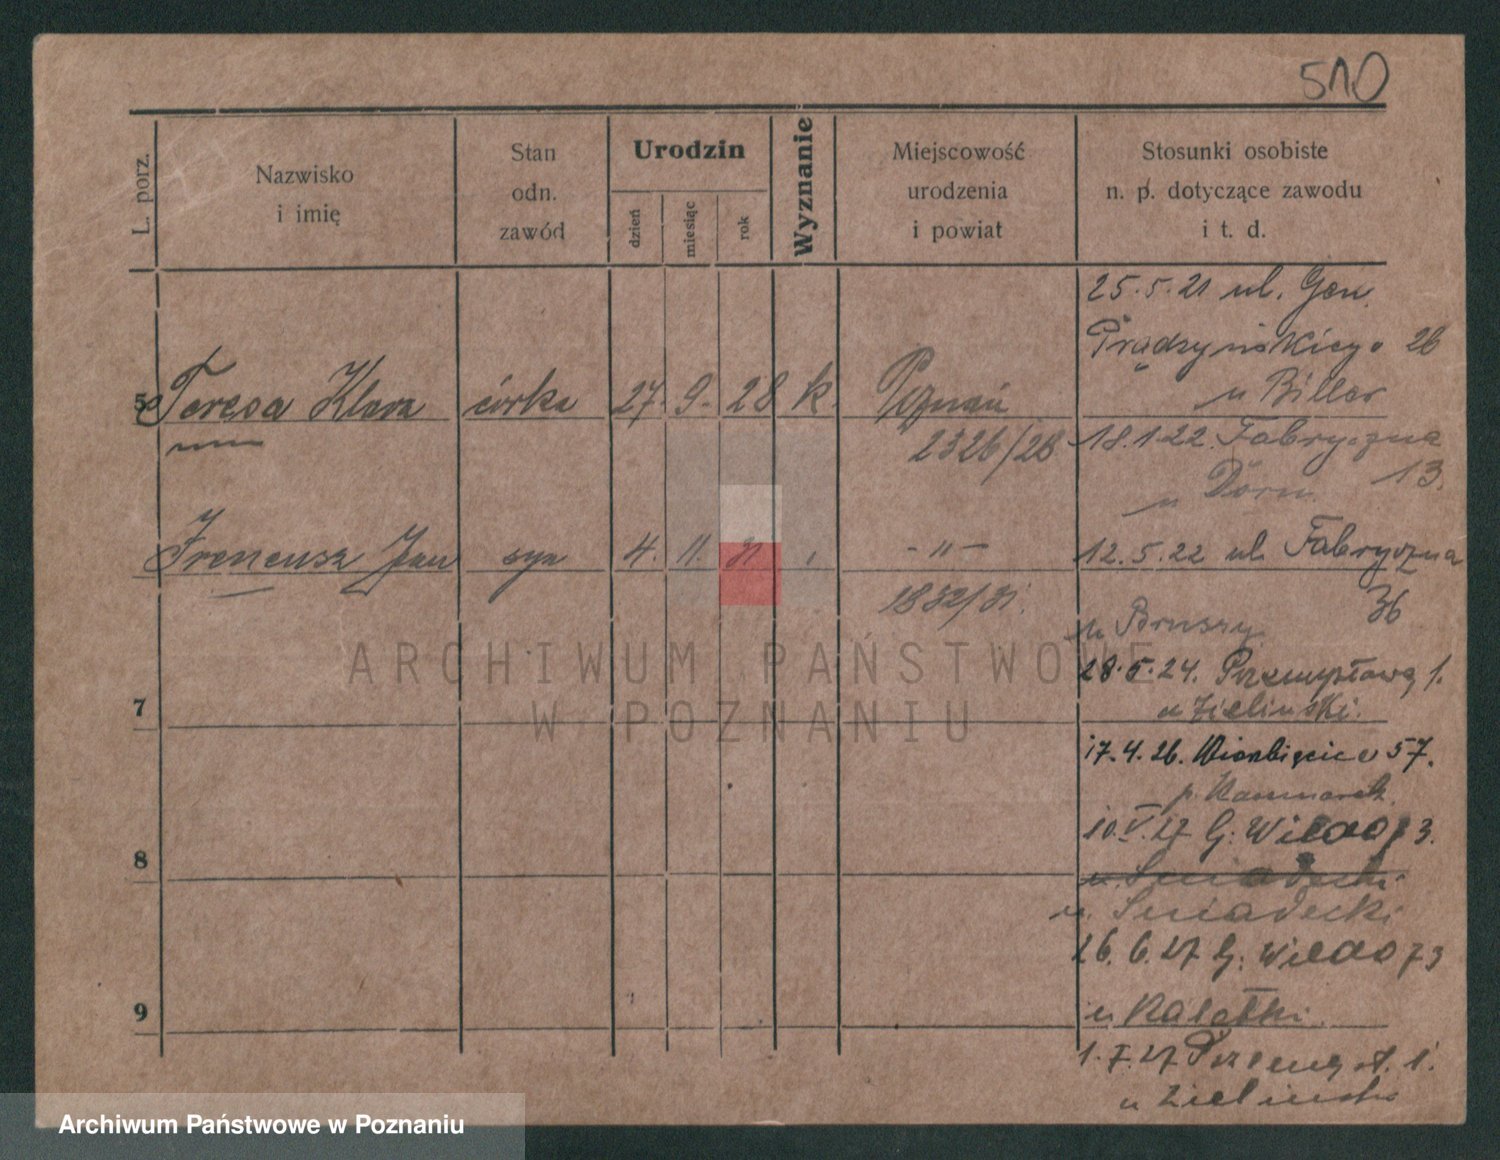 510
L. porz.
Nazwisko
i imię
Stan
odn.
zawód
Urodzin
dzień
miesiąc
rok
Wyznanie
Miejscowość
urodzenia
i powiat
Stosunki osobiste
n. p. dotyczące zawodu
i t. d.
25.5.21 ul. Gen.
Prądzyńskiego 26
u Biller
5 Teresa Klara córka 27. 9. 28 k. Poznań
2326/28
18.1.22. Fabryczna
13.
u Dorn.
Ireneusz Jan syn 4. 11. 31 - " -
1832/31.
12.5.22 ul. Fabryczna
36
u Boruszy
28.5.24. Przemysłowa 1.
u Zielinski.
7
17.4.26. Wierzbięcice 57.
p. Kaczmarek
10.V.27 G. Wilda 73.
8
u. Sniadecki
u. Sniadecki
26.6.27 G. Wilda 73
9
u Kaletki.
1.X.27 Przemysł. 1.
u Zielinski
ARCHIWUM PAŃSTWOWE
W POZNANIU
Archiwum Państwowe w Poznaniu